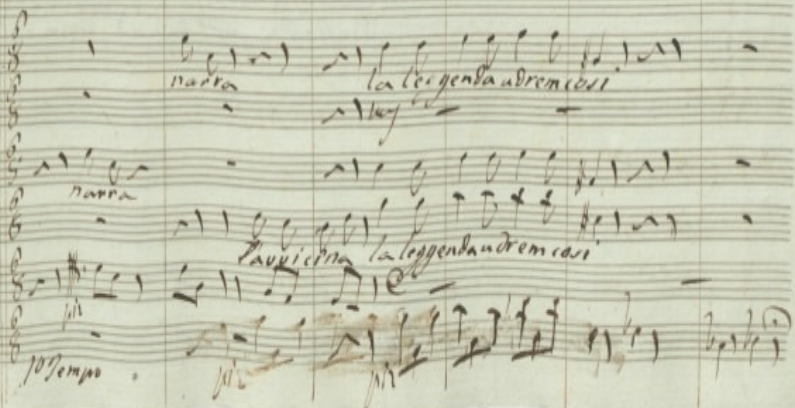 narra la leggenda udrem cosi
narra
l'avvicina la leggenda udrem cosi
piz
1º Tempo piz piz